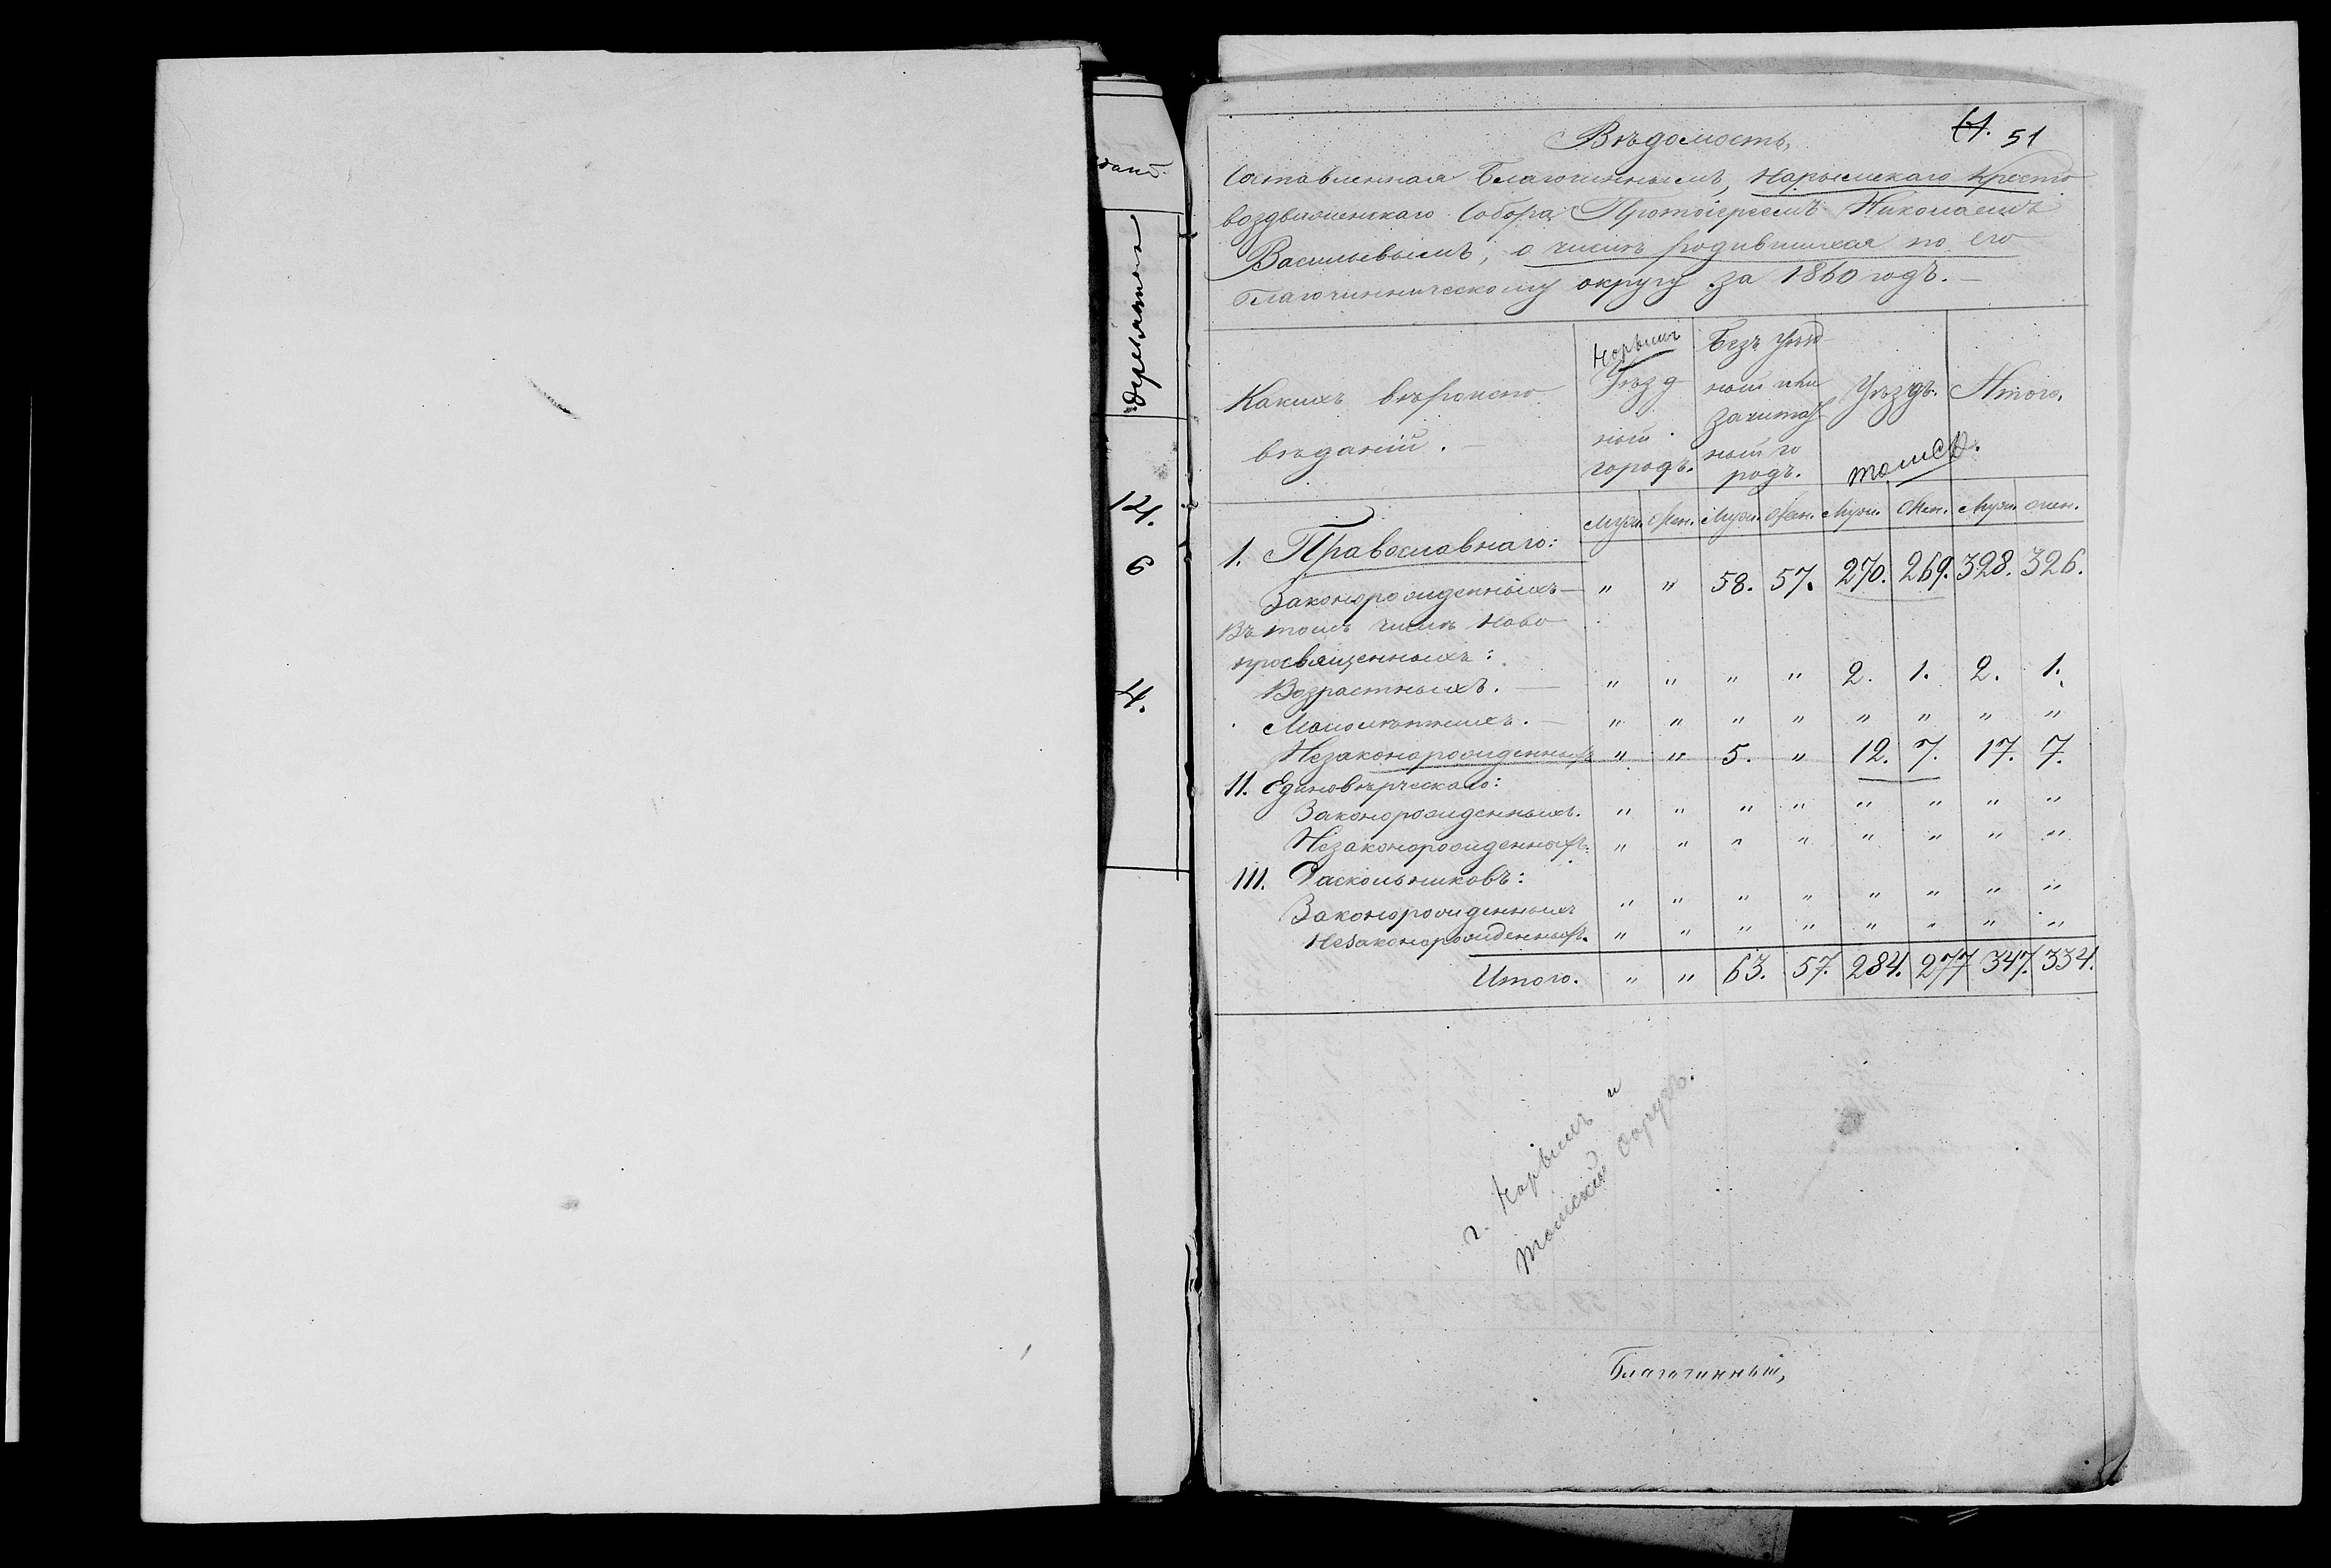 дант.
деревянная
12.
6
4.
51
Вѣдомость,
Составленная Благочиннымъ, Нарымскаго Кресто
воздвиженскаго Собора Протоіереемъ Николаемъ
Васильевымъ, о числѣ родившихся по его
благочинническому округу за 1860 годъ. —
Какихъ вѣроиспо
вѣданій. —
Нарымъ
Уѣзд
ный
городъ.
Безъ уѣзд
ный или
заштат
ный го
родъ.
Уѣздъ.
Томскъ.
Итого.
Муж. Жен. Муж. Жен. Муж. Жен. Муж. Жен.
1. Православнаго:
Законорожденныхъ — " " 58. 57. 270. 269. 328. 326.
Въ томъ числѣ ново
просвященныхъ:
Возрастныхъ. — " " " " 2. 1. 2. 1.
Малолѣтнихъ. — " " " " " " " "
Незаконорожденныхъ " " 5. " 12. 7. 17. 7.
11. Единовѣрческаго:
Законорожденныхъ. " " " " " " " "
Незаконорожденныхъ. " " " " " " " "
111. Раскольниковъ:
Законорожденныхъ " " " " " " " "
Незаконорожденныхъ. " " " " " " " "
Итого. " " 63. 57. 284. 277 347. 334.
г. Нарымъ и
Томскій округъ.
Благочинный,